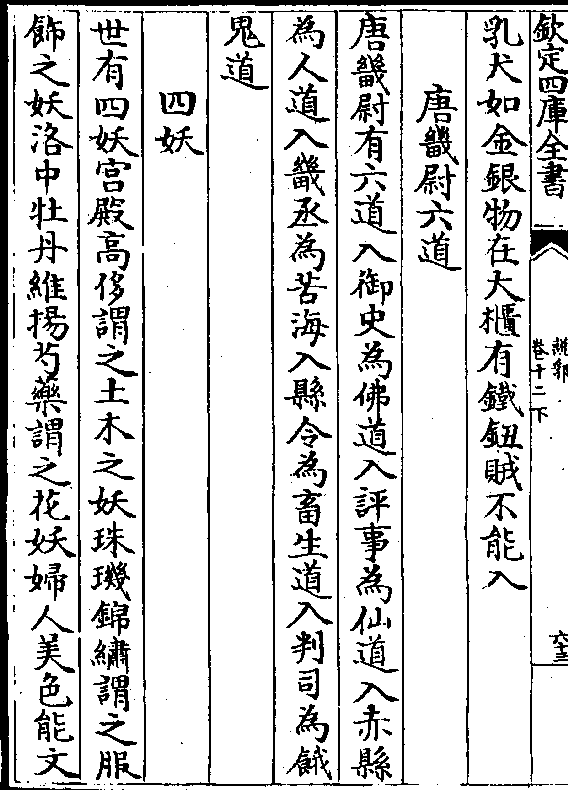 欽定四庫全書
說郛
卷十二下
六三
乳犬如金銀物在大櫃有鐵鈕賊不能入
唐畿尉六道
唐畿尉有六道入御史為佛道入評事為仙道入赤縣
為人道入畿丞為苦海入縣令為畜生道入判司為餓
鬼道
四妖
世有四妖宫殿高侈謂之土木之妖珠璣錦繡謂之服
飾之妖洛中牡丹維揚芍藥謂之花妖婦人美色能文